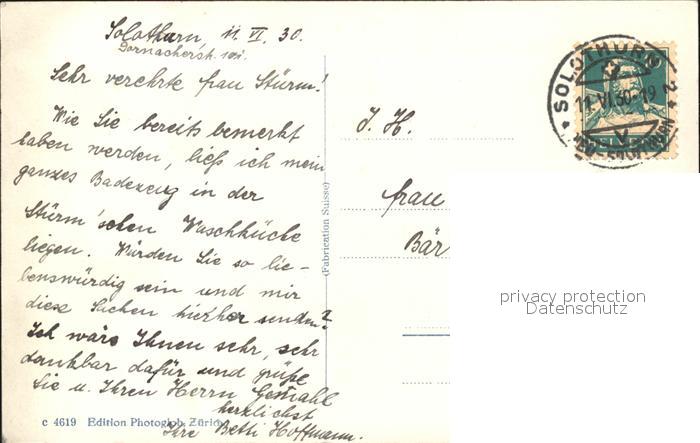 Solothurn 11. VI. 30.
Dornacherstr. 101.
Sehr verehrte frau Stürm!
Wie Sie bereits bemerkt
haben werden, ließ ich mein
ganzes Badezeug in der
Stürm'schen Waschküche
liegen. Würden Sie so lie-
benswürdig sein und mir
diese Sachen hierher senden?
Ich wäre Ihnen sehr, sehr
dankbar dafür und grüße
Sie u. Ihren Herrn Gemahl
herzlichst
Ihre Betti Hoffmann.
c 4619 Edition Photoglob, Zürich
(Fabrication Suisse)
SOLOTHURN 2
11.VI.30-19
I. H.
frau
Bär
privacy protection
Datenschutz